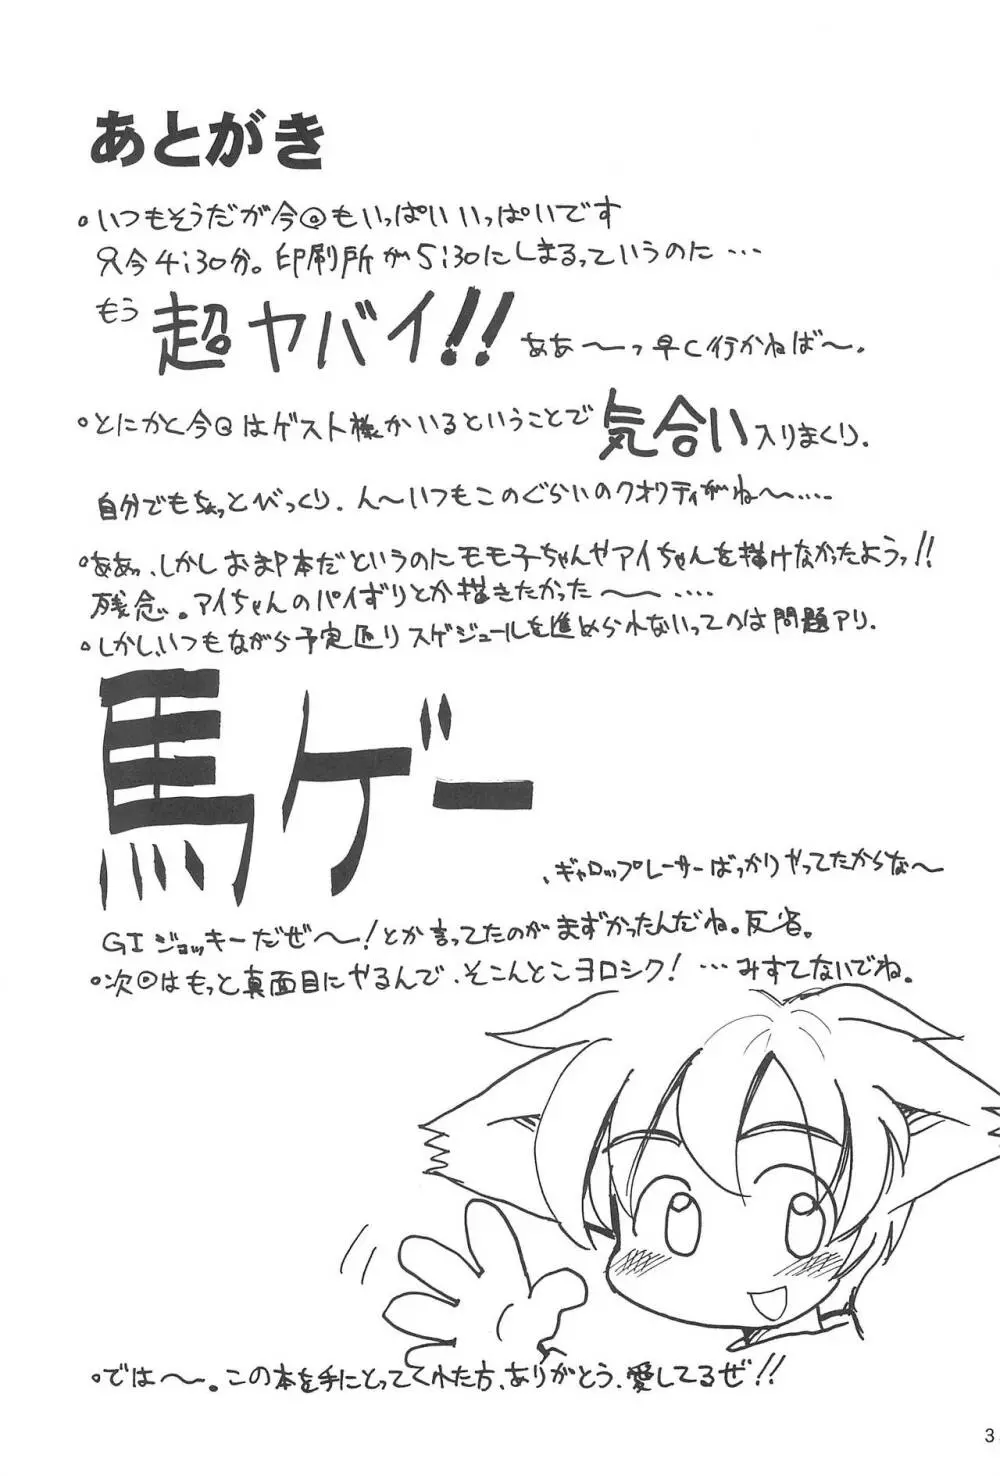 あとがき
・いつもそうだが今回もいっぱいいっぱいです
只今4:30分。印刷所が5:30にしまるっていうのに…
もう超ヤバイ!! ああ〜っ早く行かねば〜.
・とにかく今回はゲスト様がいるということで気合い入りまくり.
自分でもちょっとびっくり.ん〜いつもこのぐらいのクオリティがね〜……
・ああっ、しかしおまP本だというのにモモ子ちゃんやアイちゃんを描けなかったようっ!!
残念。アイちゃんのパイずりとか描きたかった〜……
・しかし、いつもながら予定通りスケジュールを進められないってのは問題アリ.
馬ゲー
、ギャロップレーサーばっかりやってたからな〜
GIジョッキーだぜ〜!とか言ってたのがまずかったんだね。反省。
・次回はもっと真面目にやるんで、そこんとこヨロシク!…みすてないでね。
・では〜。この本を手にとってくれた方、ありがとう、愛してるぜ!!
3